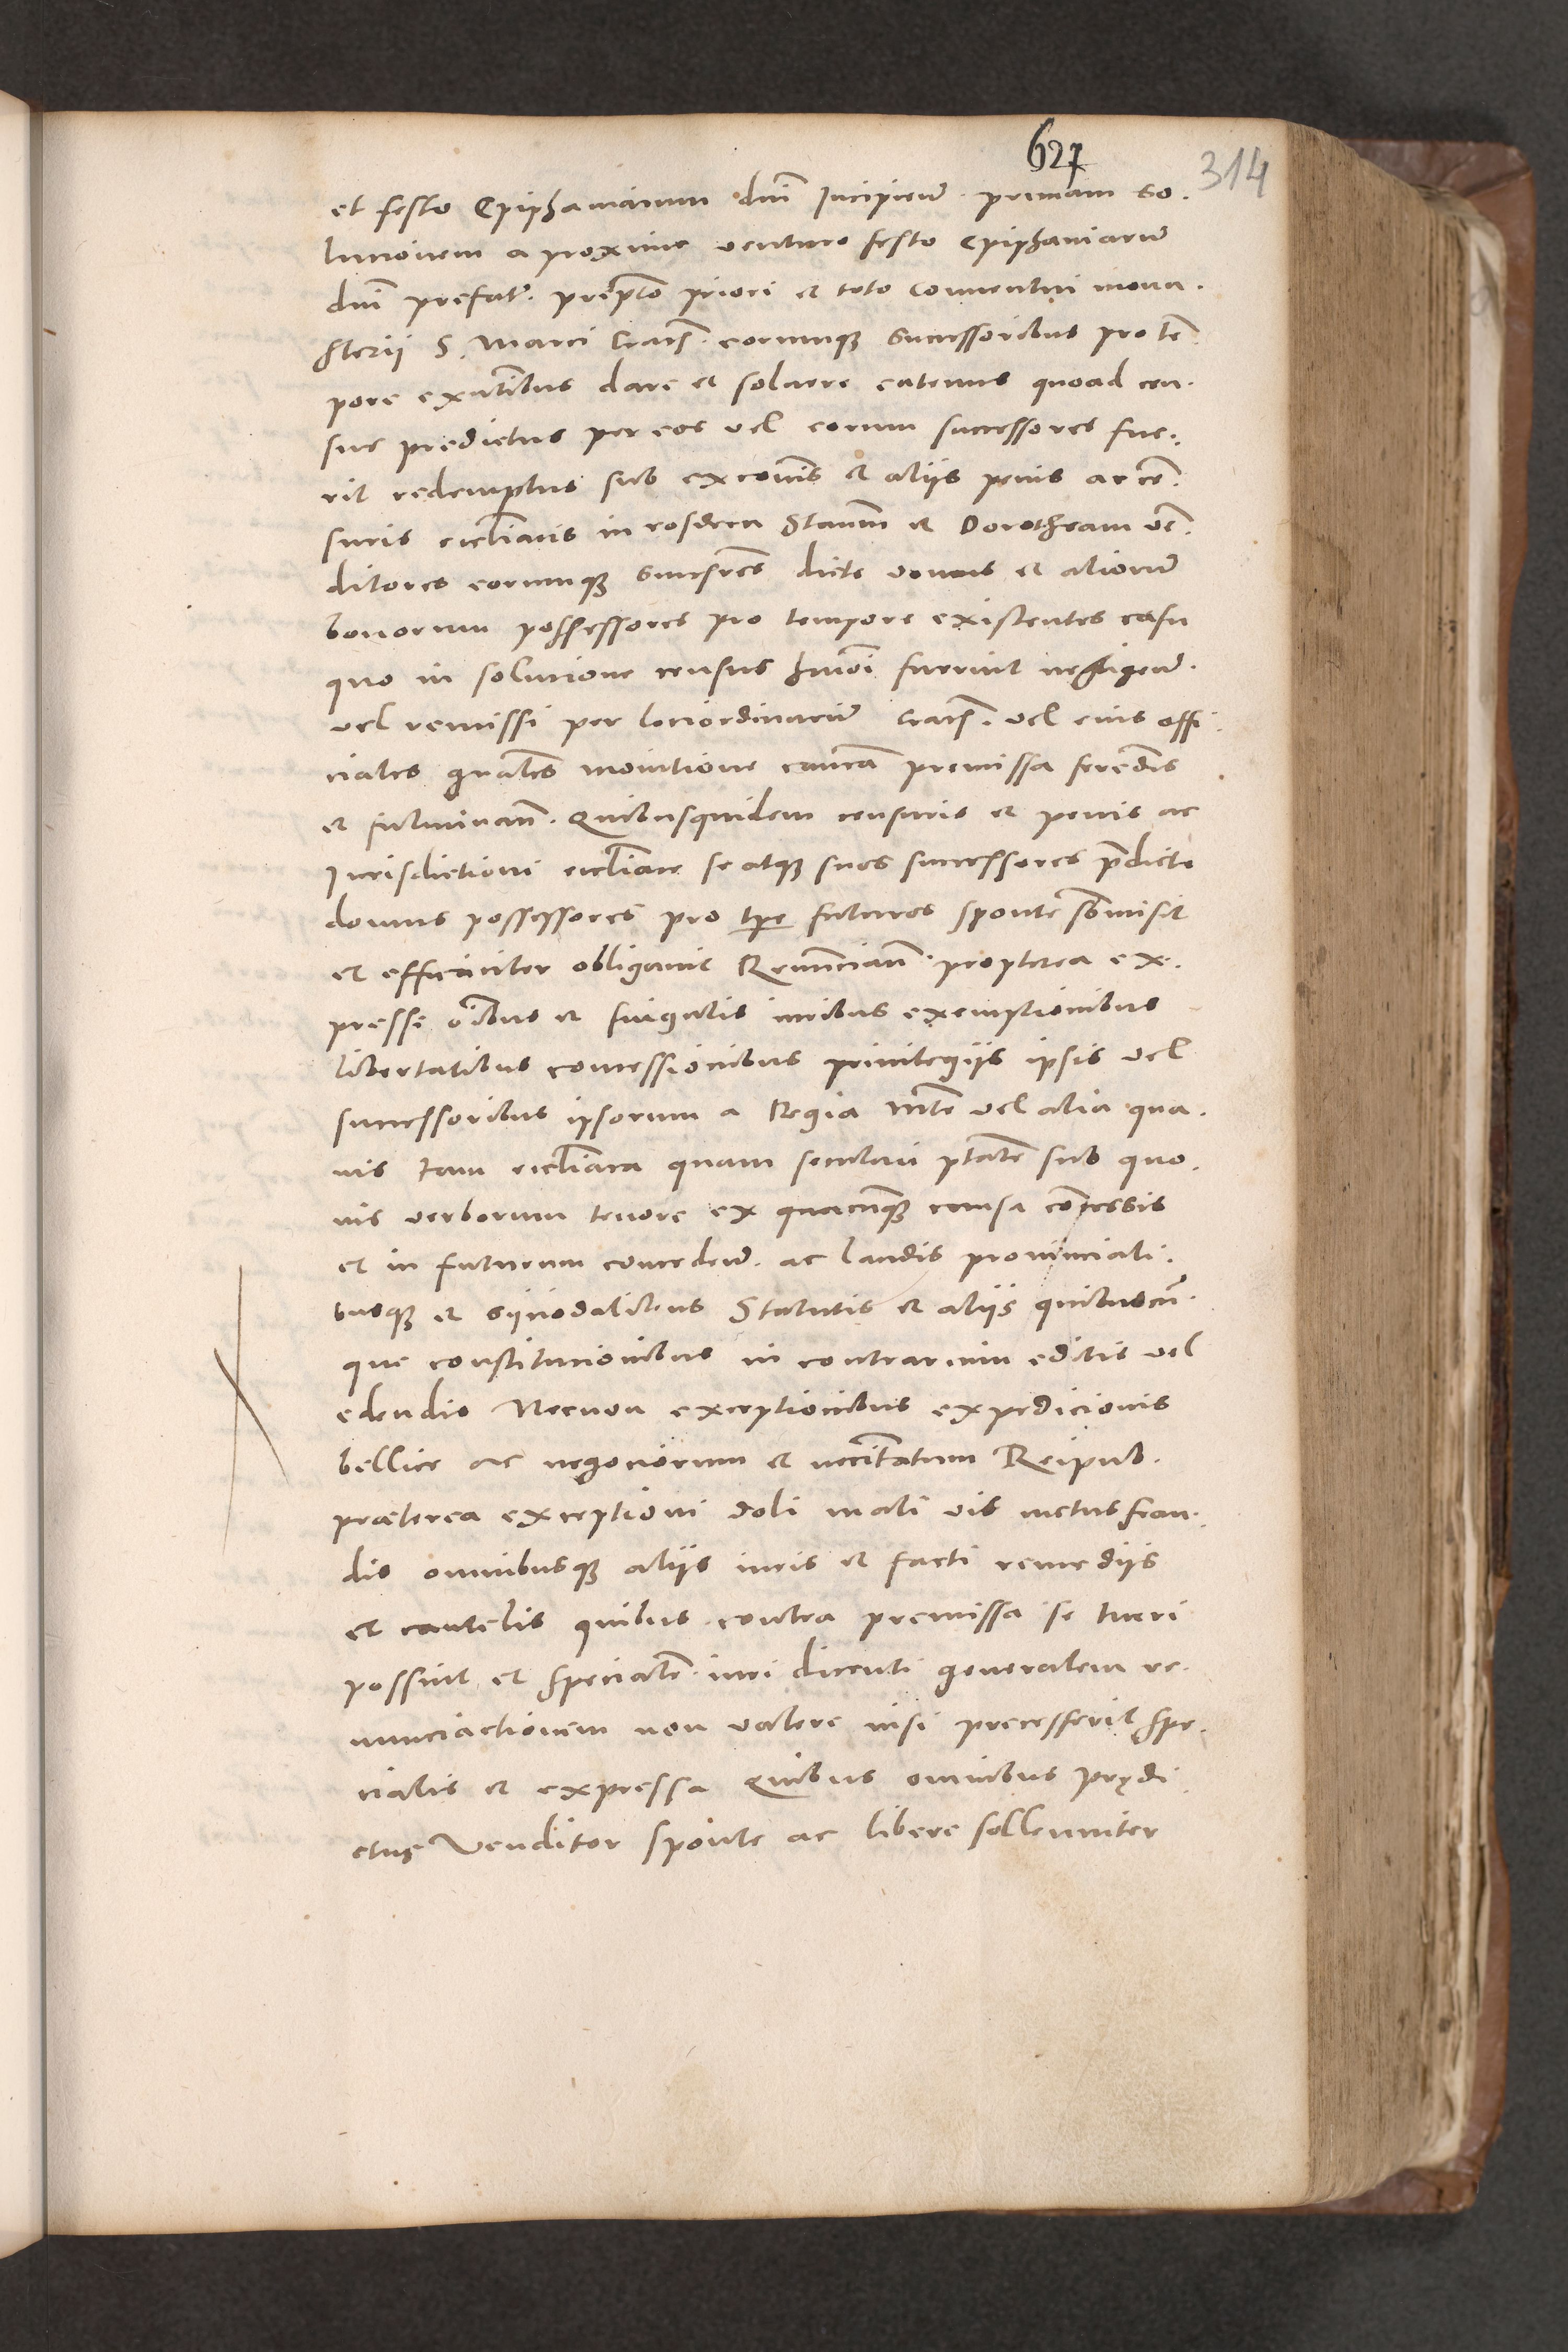 627
314
et festo Epiphaniarum dnī Incipienꝰ. primam so.
lucionem a proxime venturo festo Epiphaniarꝰ
dnī prefatꝰ. prēpto priori et toto Conventui mona.
sterij S. Marci Cracꝰ. eorumqꝫ Successoribus pro tē
pore exn̄tibus dare et soluere eatenus quoad cen.
sus predictus per eos vel eorum successores fue.
rit redemptus sub excōnis et aliis penis ac cē.
suris eccl̄iacis in eosdem Stanm̄ et Dorotheam vē.
ditores eorumqꝫ Succsrēs dicte domus et aliorꝰ
bonorum possessores pro tempore existentes casu
quo in solucione census hmōi fuerint negligenꝰ.
vel remissi per loci ordinariꝰ Cracꝰ. vel eius offi.
ciales gnales monitione canīca premissa ferendis
et fulminan̄. Quibusquidem censuris et penis ac
Jurisdictioni eccl̄iace se atqꝫ suos successores p̄dicte
domus possessores pro tpe futuros sponte sōmisit
et efficaciter obligavit Renunciān. propterea ex.
presse oībus et singulis iuribus exemptionibus
libertatibus concessionibus privilegiis ipsis vel
successoribus ipsorum a Regia Mte vel alia qua.
vis tam eccl̄iaca quam seculari ptāte sub quo.
vis verborum tenore ex quacunqꝫ causa cōcessis
et in futurum concedenꝰ. ac laudis provinciali.
busqꝫ et synodalibus Statutis et aliis quibuscū.
que constitucionibus in contrarium editis vel
edendis Necnon exceptionibus expedicionis
bellice ac negociorum et necitatum Reipub.
præterea exceptioni doli mali vis metus frau.
dis omnibusqꝫ aliis iuris et facti remediis
et cautelis quibus contra premissa se tueri
possint et specialē. iuri dicenti generalem re.
nunciactionem non valere nisi precesserit spe.
cialis et expressa Quibus omnibus prędi
ctus Venditor sponte ac libere sollenniter